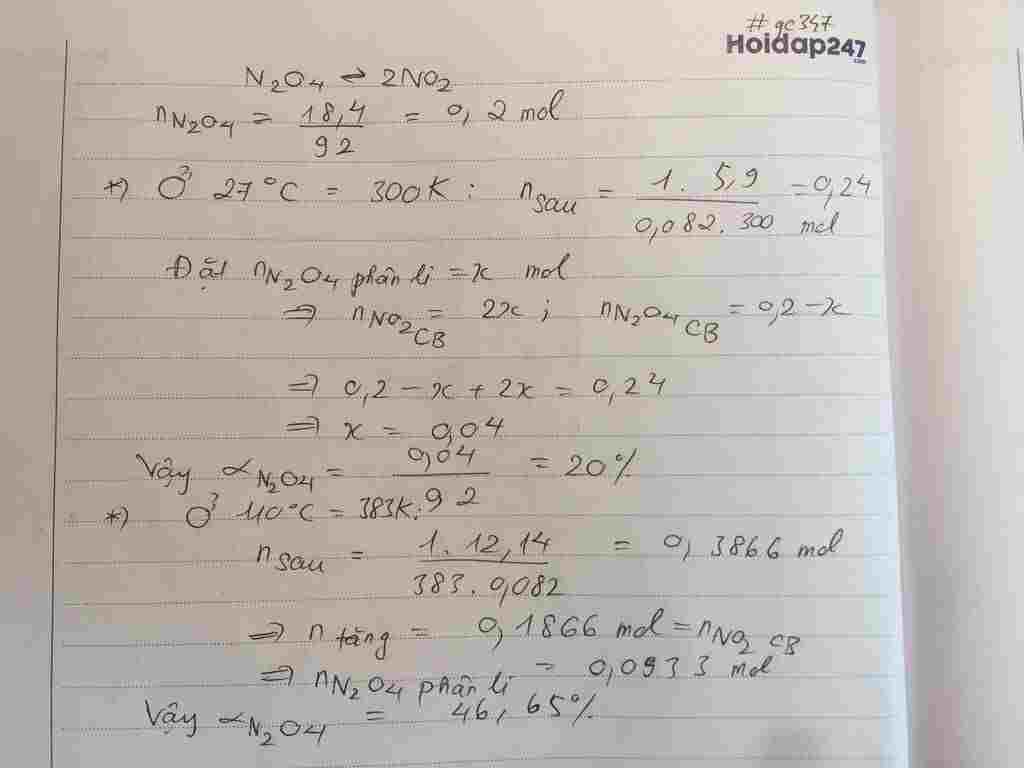 #gc347
Hoidap247
.com
N2O4 ⇌ 2NO2
nN2O4 = 18,4/92 = 0,2 mol
*) Ở 27°C = 300K: nsau = 1. 5,9/0,082. 300 = 0,24 mol
Đặt nN2O4 phân li = x mol
⇒ nNO2 CB = 2x ; nN2O4 CB = 0,2 - x
⇒ 0,2 - x + 2x = 0,24
⇒ x = 0,04
Vậy αN2O4 = 0,04/92 = 20%
*) Ở 110°C = 383K:
nsau = 1. 12,14/383. 0,082 = 0,3866 mol
⇒ n tăng = 0,1866 mol = nNO2 CB
⇒ nN2O4 phân li = 0,0933 mol
Vậy αN2O4 = 46,65%